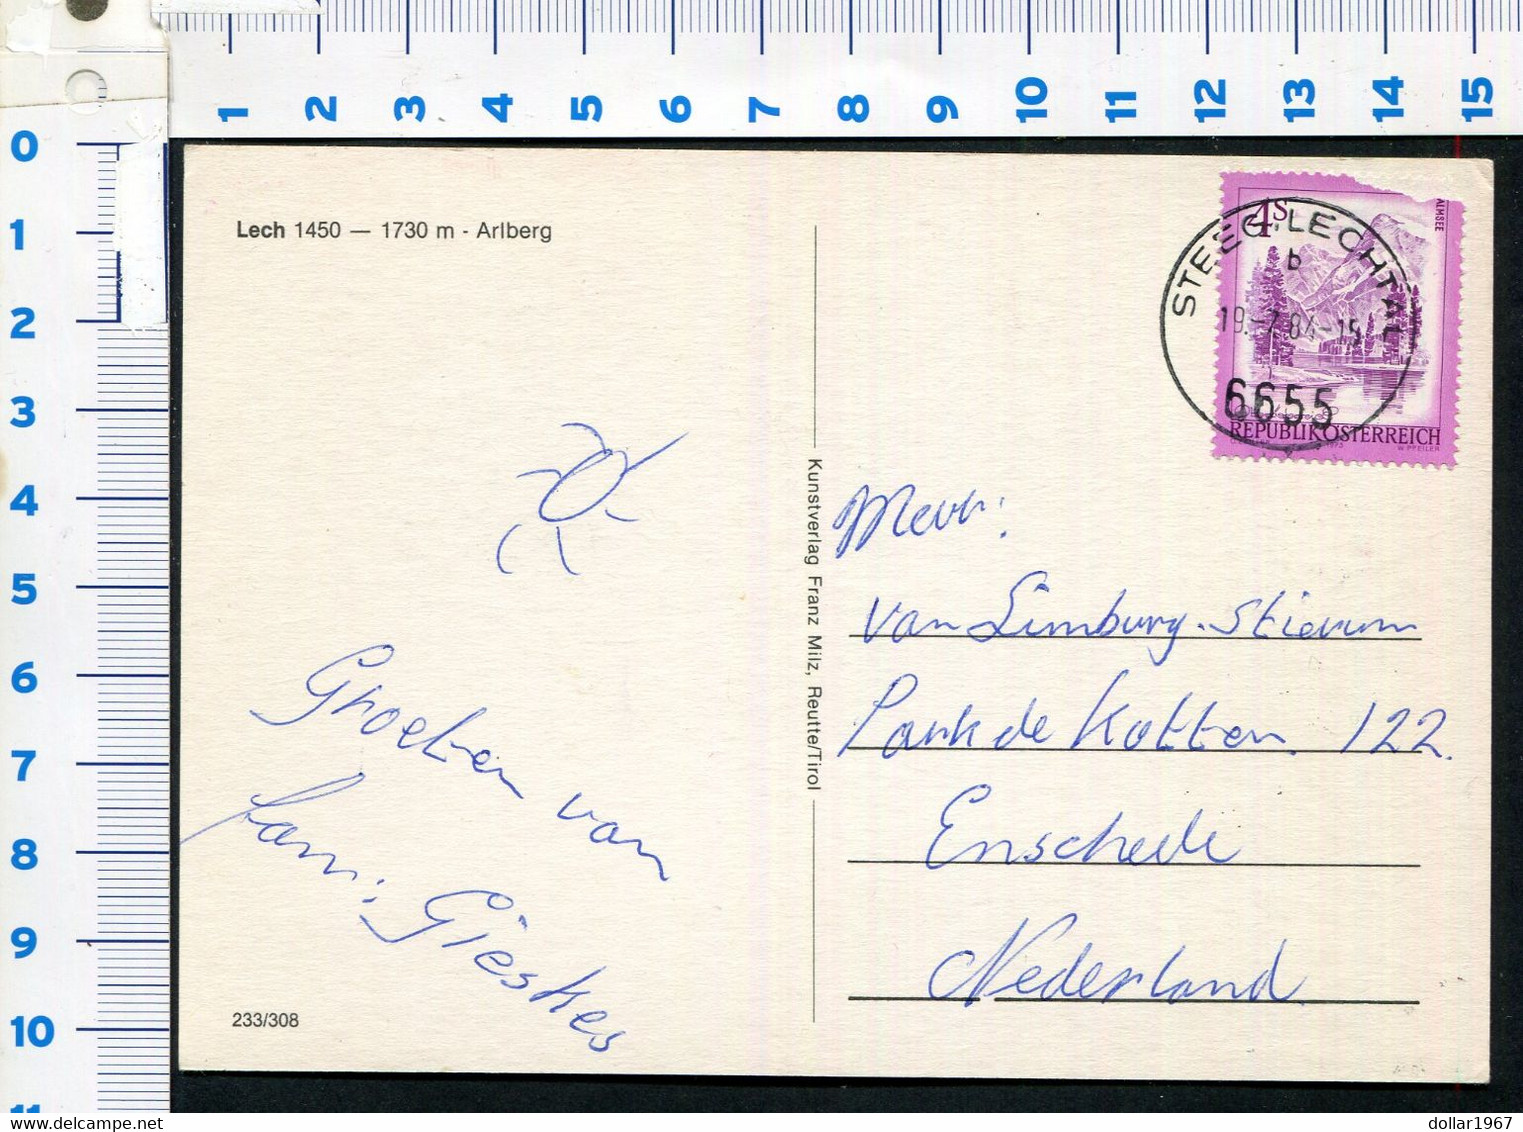 1 2 3 4 5 6 7 8 9 10 11 12 13 14 15
0
1
2
3
4
5
6
7
8
9
10
11
Lech 1450 — 1730 m - Arlberg
Groeten van
fam: Gieskes
233/308
Kunstverlag Franz Milz, Reutte/Tirol
4S
ALMSEE
STEEG, LECHTAL
b
19.-7.84-15
6655
REPUBLIK ÖSTERREICH
W. PFEILER
Mevr:
van Limburg-Stierum
Park de Kotten 122.
Enschede
Nederland
dollar1967